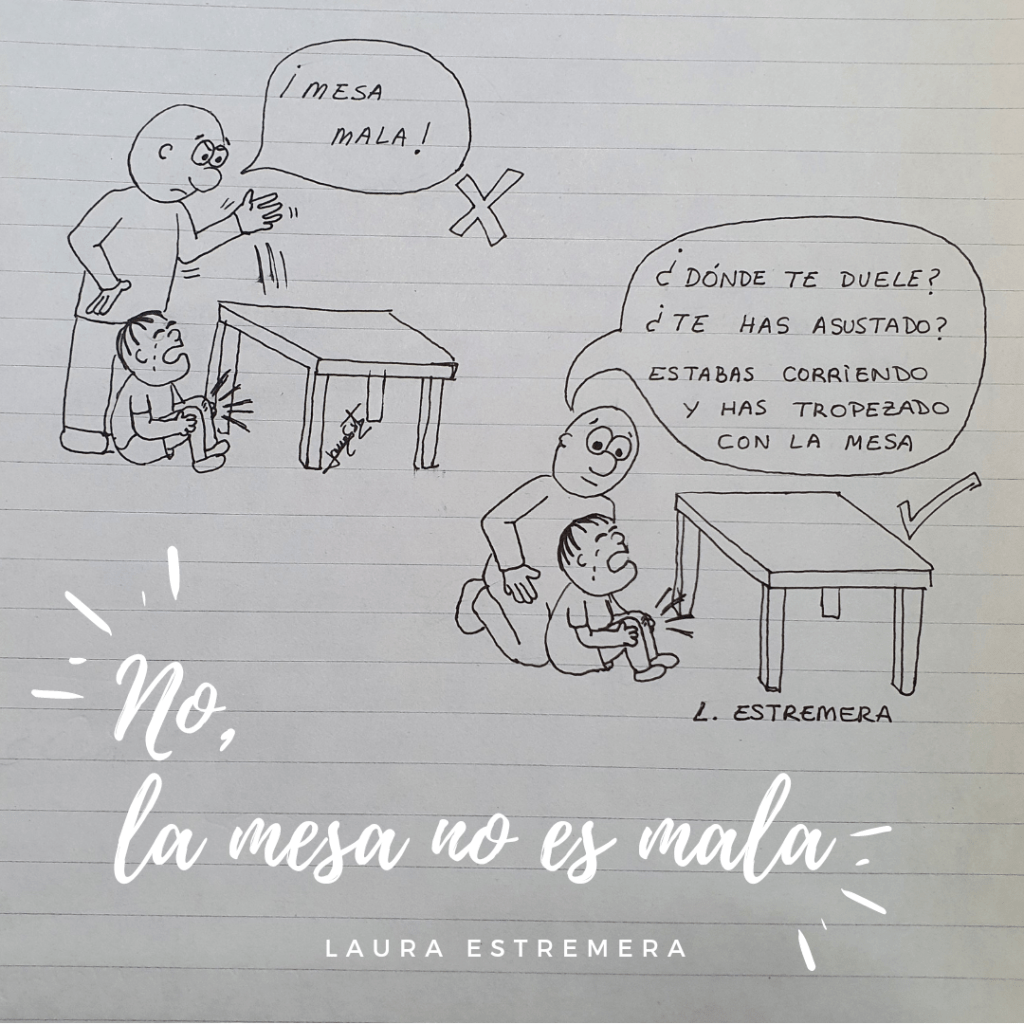 ¡MESA
MALA!
¿DÓNDE TE DUELE?
¿TE HAS ASUSTADO?
ESTABAS CORRIENDO
Y HAS TROPEZADO
CON LA MESA
L. ESTREMERA
No,
la mesa no es mala
LAURA ESTREMERA